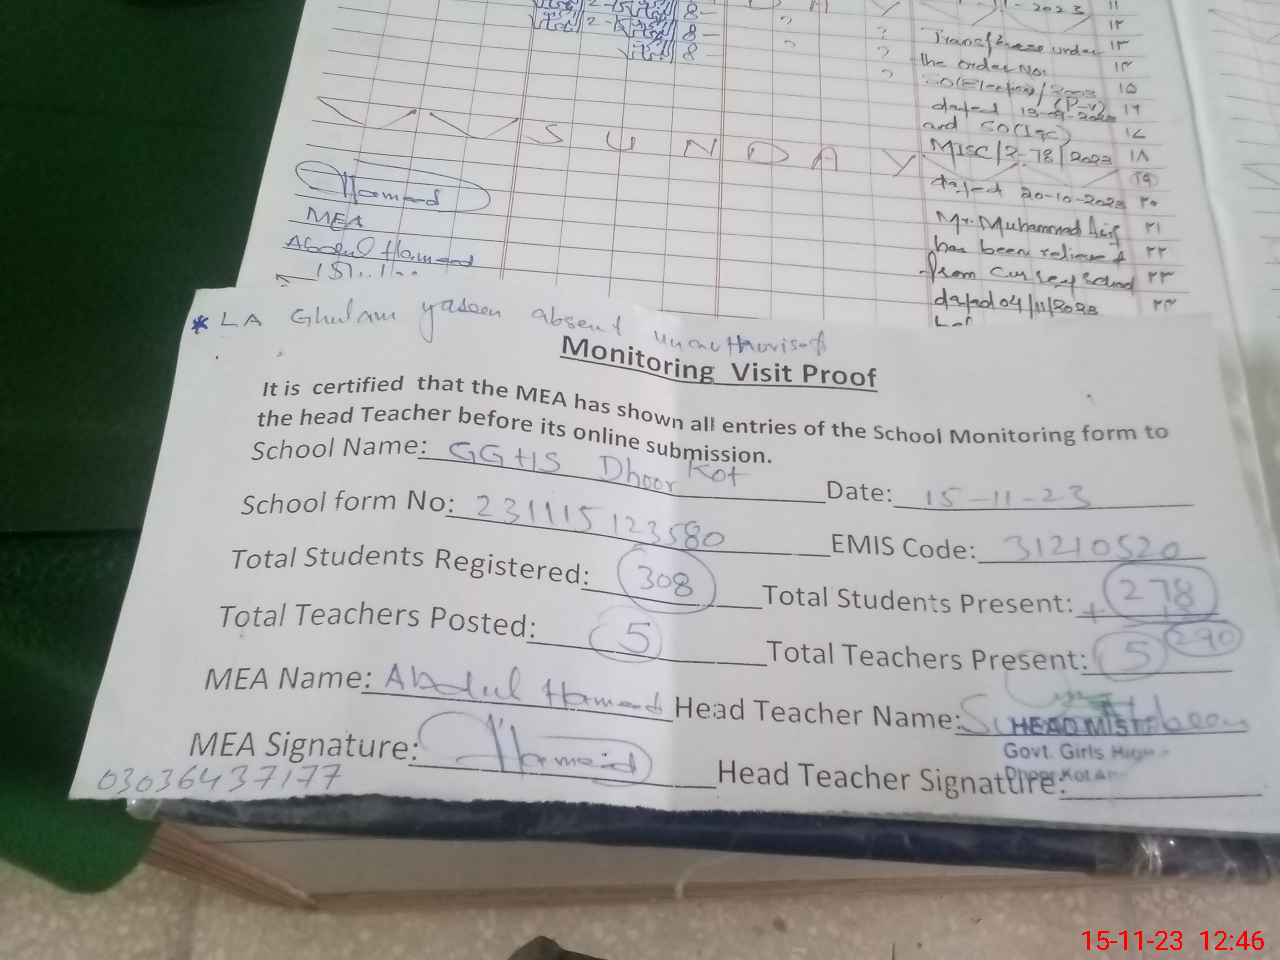 8-
2023
11
8-
"
?
12
8-
"
?
Transferred under
13
the order No.
14
SO(Elections)/2023
15
(P-V)
dated 19-09-2023
16
and SO(IqC)
17
S U N D A Y
MISC/2-78/2023
18
19
dated 20-10-2023
۲۰
Hameed
Mr. Muhammad Asif
۲۱
MEA
has been relieved
۲۲
Abdul Hameed
from
۲۳
dated 04/11/2023
۲۴
* LA Ghulam yaseen absent unauthorised
Monitoring Visit Proof
It is certified that the MEA has shown all entries of the School Monitoring form to
the head Teacher before its online submission.
School Name: GGHS Dhoor Kot Date: 15-11-23
School form No: 231115123580 EMIS Code: 31210520
Total Students Registered: 308 Total Students Present: 278
Total Teachers Posted: 5 Total Teachers Present: 5 290
MEA Name: Abdul Hameed Head Teacher Name:
HEAD MIST
MEA Signature: Hameed
Govt. Girls High
Dhoor Kot
03036437177 Head Teacher Signature:
15-11-23 12:46